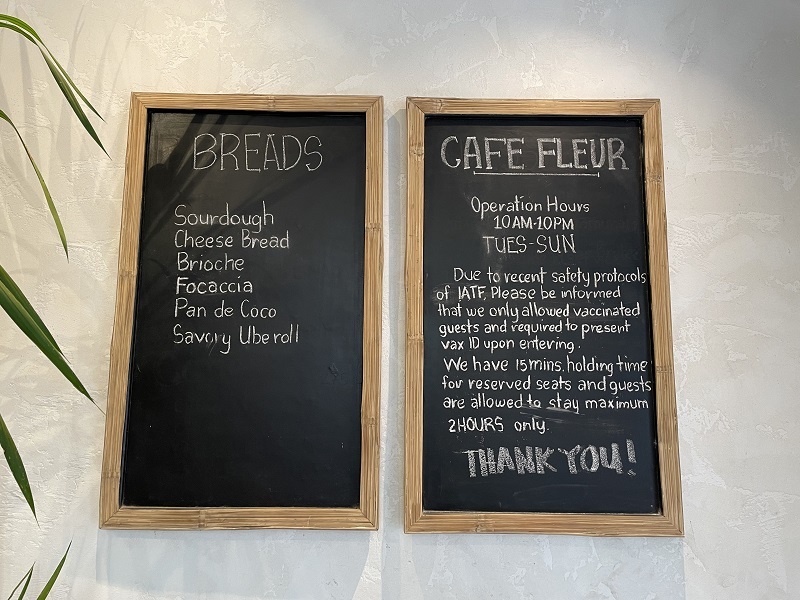 BREADS
Sourdough
Cheese Bread
Brioche
Focaccia
Pan de Coco
Savory Ube roll
CAFE FLEUR
Operation Hours
10AM-10PM
TUES-SUN
Due to recent safety protocols
of IATF, Please be informed
that we only allowed vaccinated
guests and required to present
vax ID upon entering.
We have 15mins. holding time
for reserved seats and guests
are allowed to stay maximum
2HOURS only.
THANK YOU!